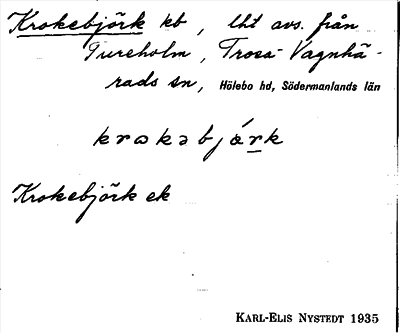 Krokebjörk kb, lht avs. från
Tureholm, Trosa-Vagnhä-
rads sn, Hölebo hd, Södermanlands län
krokəbjərk
Krokebjörk ek
KARL-ELIS NYSTEDT 1935